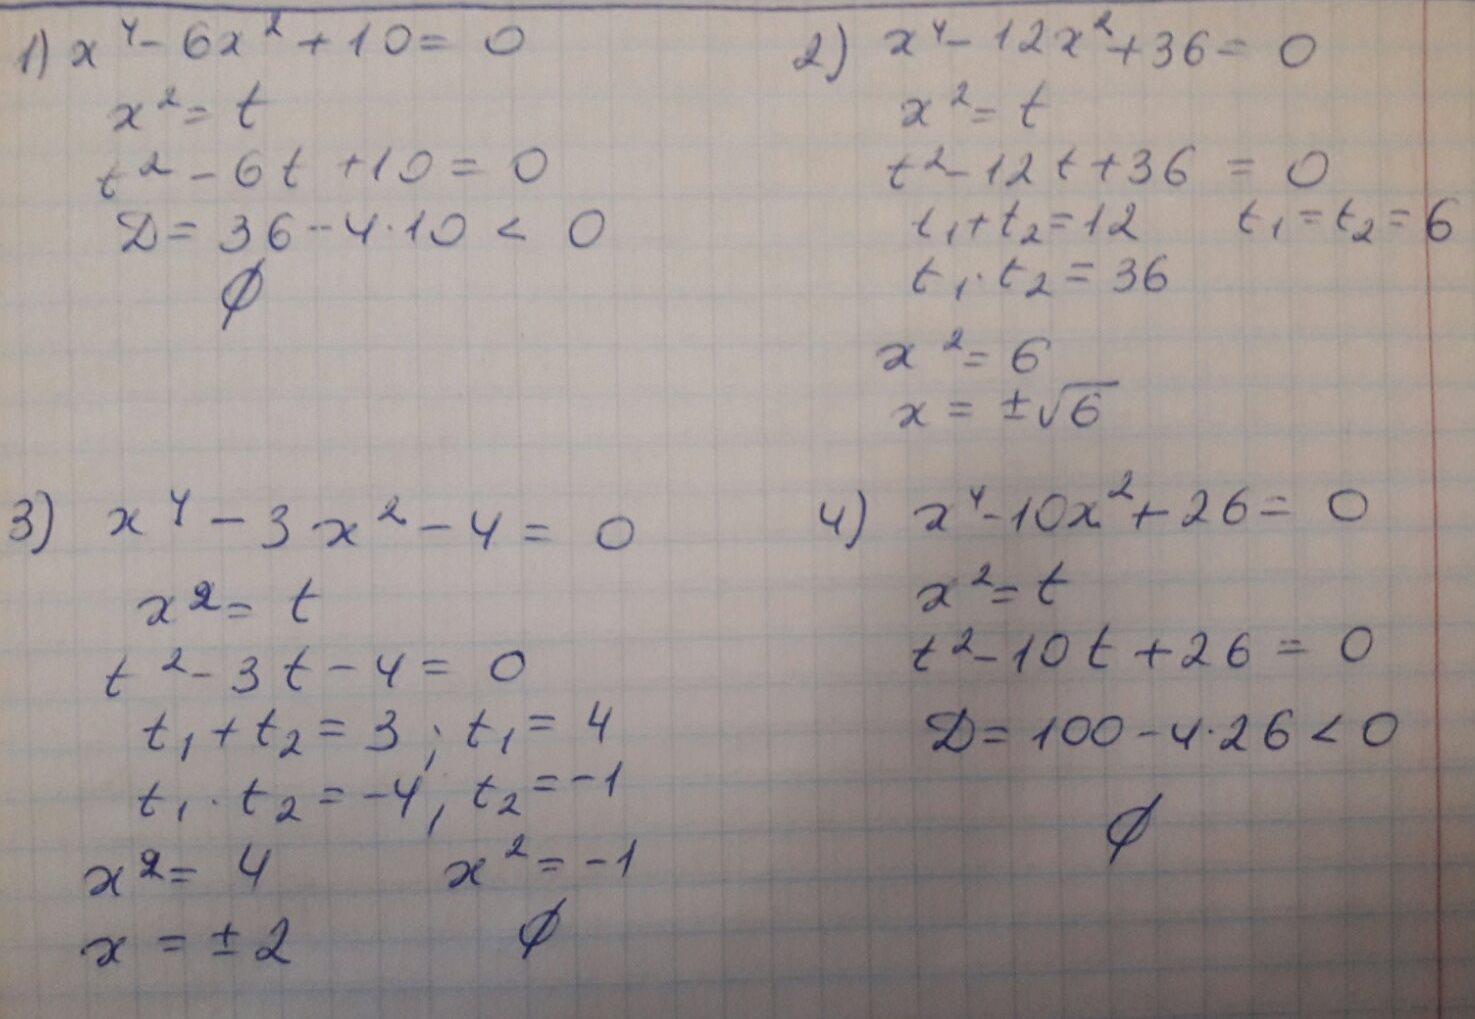 1) x⁴ - 6x² + 10 = 0
x² = t
t² - 6t + 10 = 0
D = 36 - 4·10 < 0
∅
2) x⁴ - 12x² + 36 = 0
x² = t
t² - 12t + 36 = 0
t₁ + t₂ = 12 t₁ = t₂ = 6
t₁ · t₂ = 36
x² = 6
x = ±√6
3) x⁴ - 3x² - 4 = 0
x² = t
t² - 3t - 4 = 0
t₁ + t₂ = 3 ; t₁ = 4
t₁ · t₂ = -4 , t₂ = -1
x² = 4 x² = -1
x = ±2 ∅
4) x⁴ - 10x² + 26 = 0
x² = t
t² - 10t + 26 = 0
D = 100 - 4·26 < 0
∅